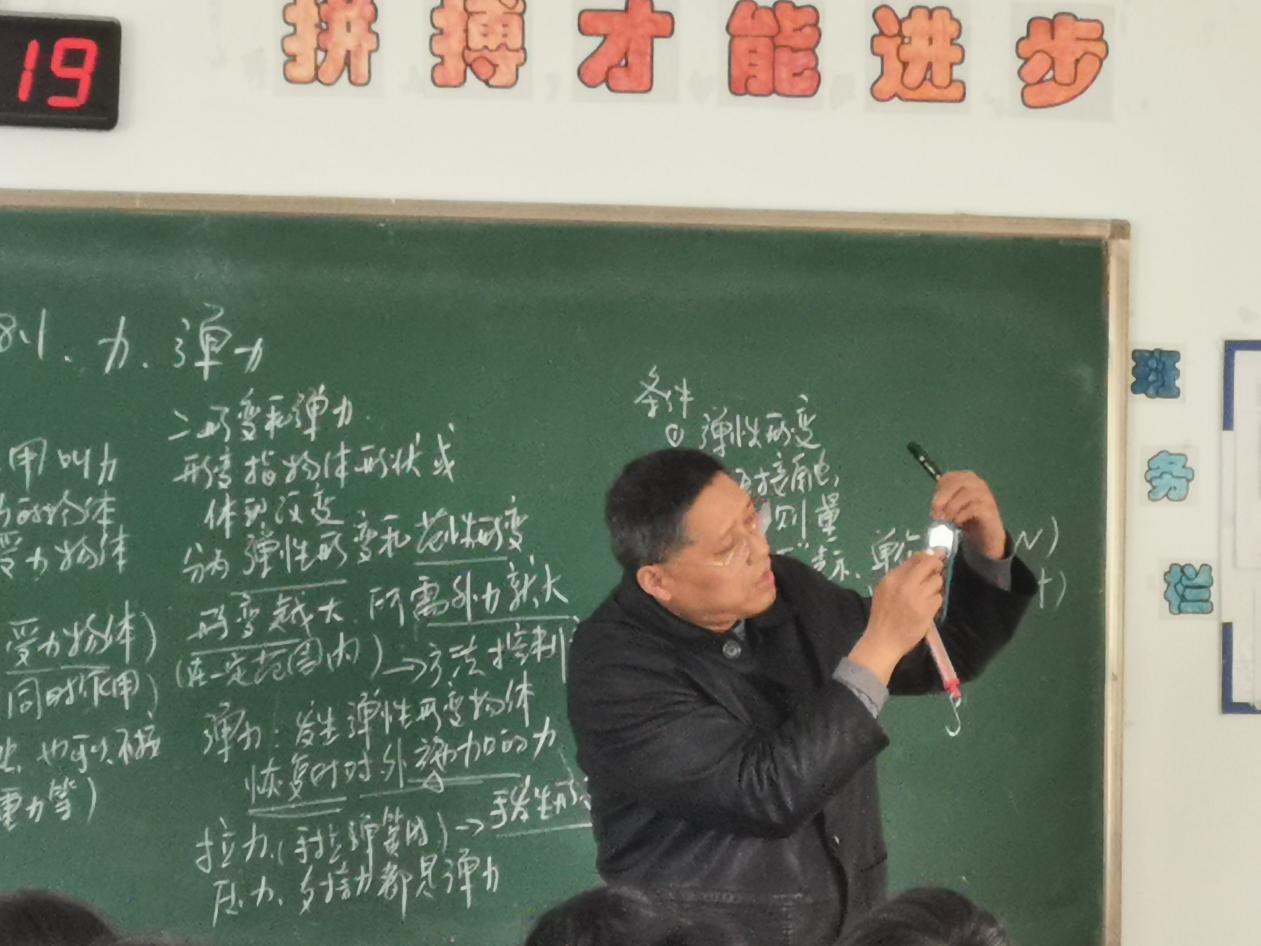 19
拼搏才能进步
8.1、力、弹力
用叫力
的物体
受力物体
受力物体)
同时作用)
也可以不接
重力等)
二形变和弹力
形变指物体形状或
体积改变
分为弹性形变和范性形变
形变越大 所需外力就大
(在一定范围内)→方法控制
弹力：发生弹性形变物体
恢复时对外施加的力
拉力、(手拉弹簧的)→手发生形
压力、支持力都是弹力
条件
① 弹性形变
接触
测量
表示、单位 N)
班
务
栏